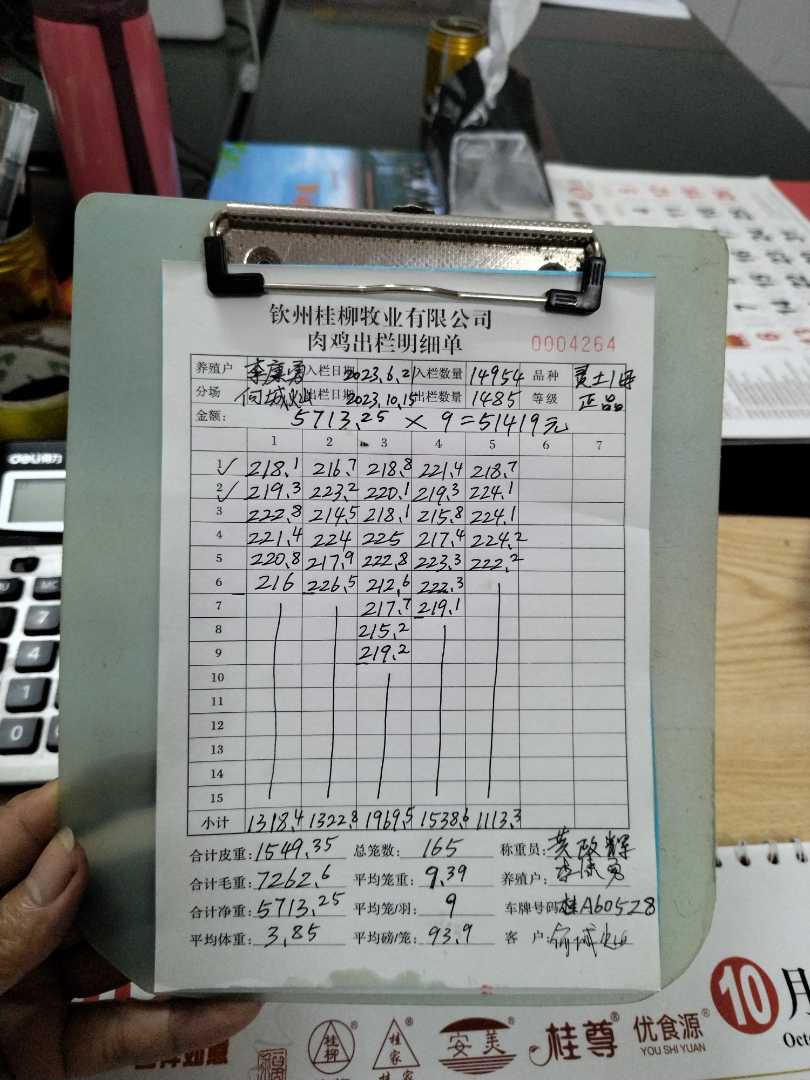 钦州桂柳牧业有限公司
肉鸡出栏明细单 0004264
养殖户 李康勇 入栏日期 2023.6.21 入栏数量 14954 品种 灵土1号
分场 出栏日期 2023.10.15 出栏数量 1485 等级 正品
金额: 5713.25 × 9=51419元
1 2 3 4 5 6 7
1 ✓ 218.1 216.7 218.8 221.4 218.7
2 ✓ 219.3 223.2 220.1 219.3 224.1
3 222.8 214.5 218.1 215.8 224.1
4 221.4 224 225 217.4 224.2
5 220.8 217.9 222.8 223.3 222.2
6 216 226.5 212.6 222.3
7 217.7 219.1
8 215.2
9 219.2
10
11
12
13
14
15
小计 1318.4 1322.8 1969.5 1538.6 1113.3
合计皮重: 1549.35 总笼数: 165 称重员: 黄政辉
合计毛重: 7262.6 平均笼重: 9.39 养殖户: 李康勇
合计净重: 5713.25 平均笼/羽: 9 车牌号码: 桂A60528
平均体重: 3.85 平均磅/笼: 93.9 客户:
deli得力
MC
7
4
1
0
10月
Octo
桂柳
桂家
安美
桂尊
优食源
YOU SHI YUAN